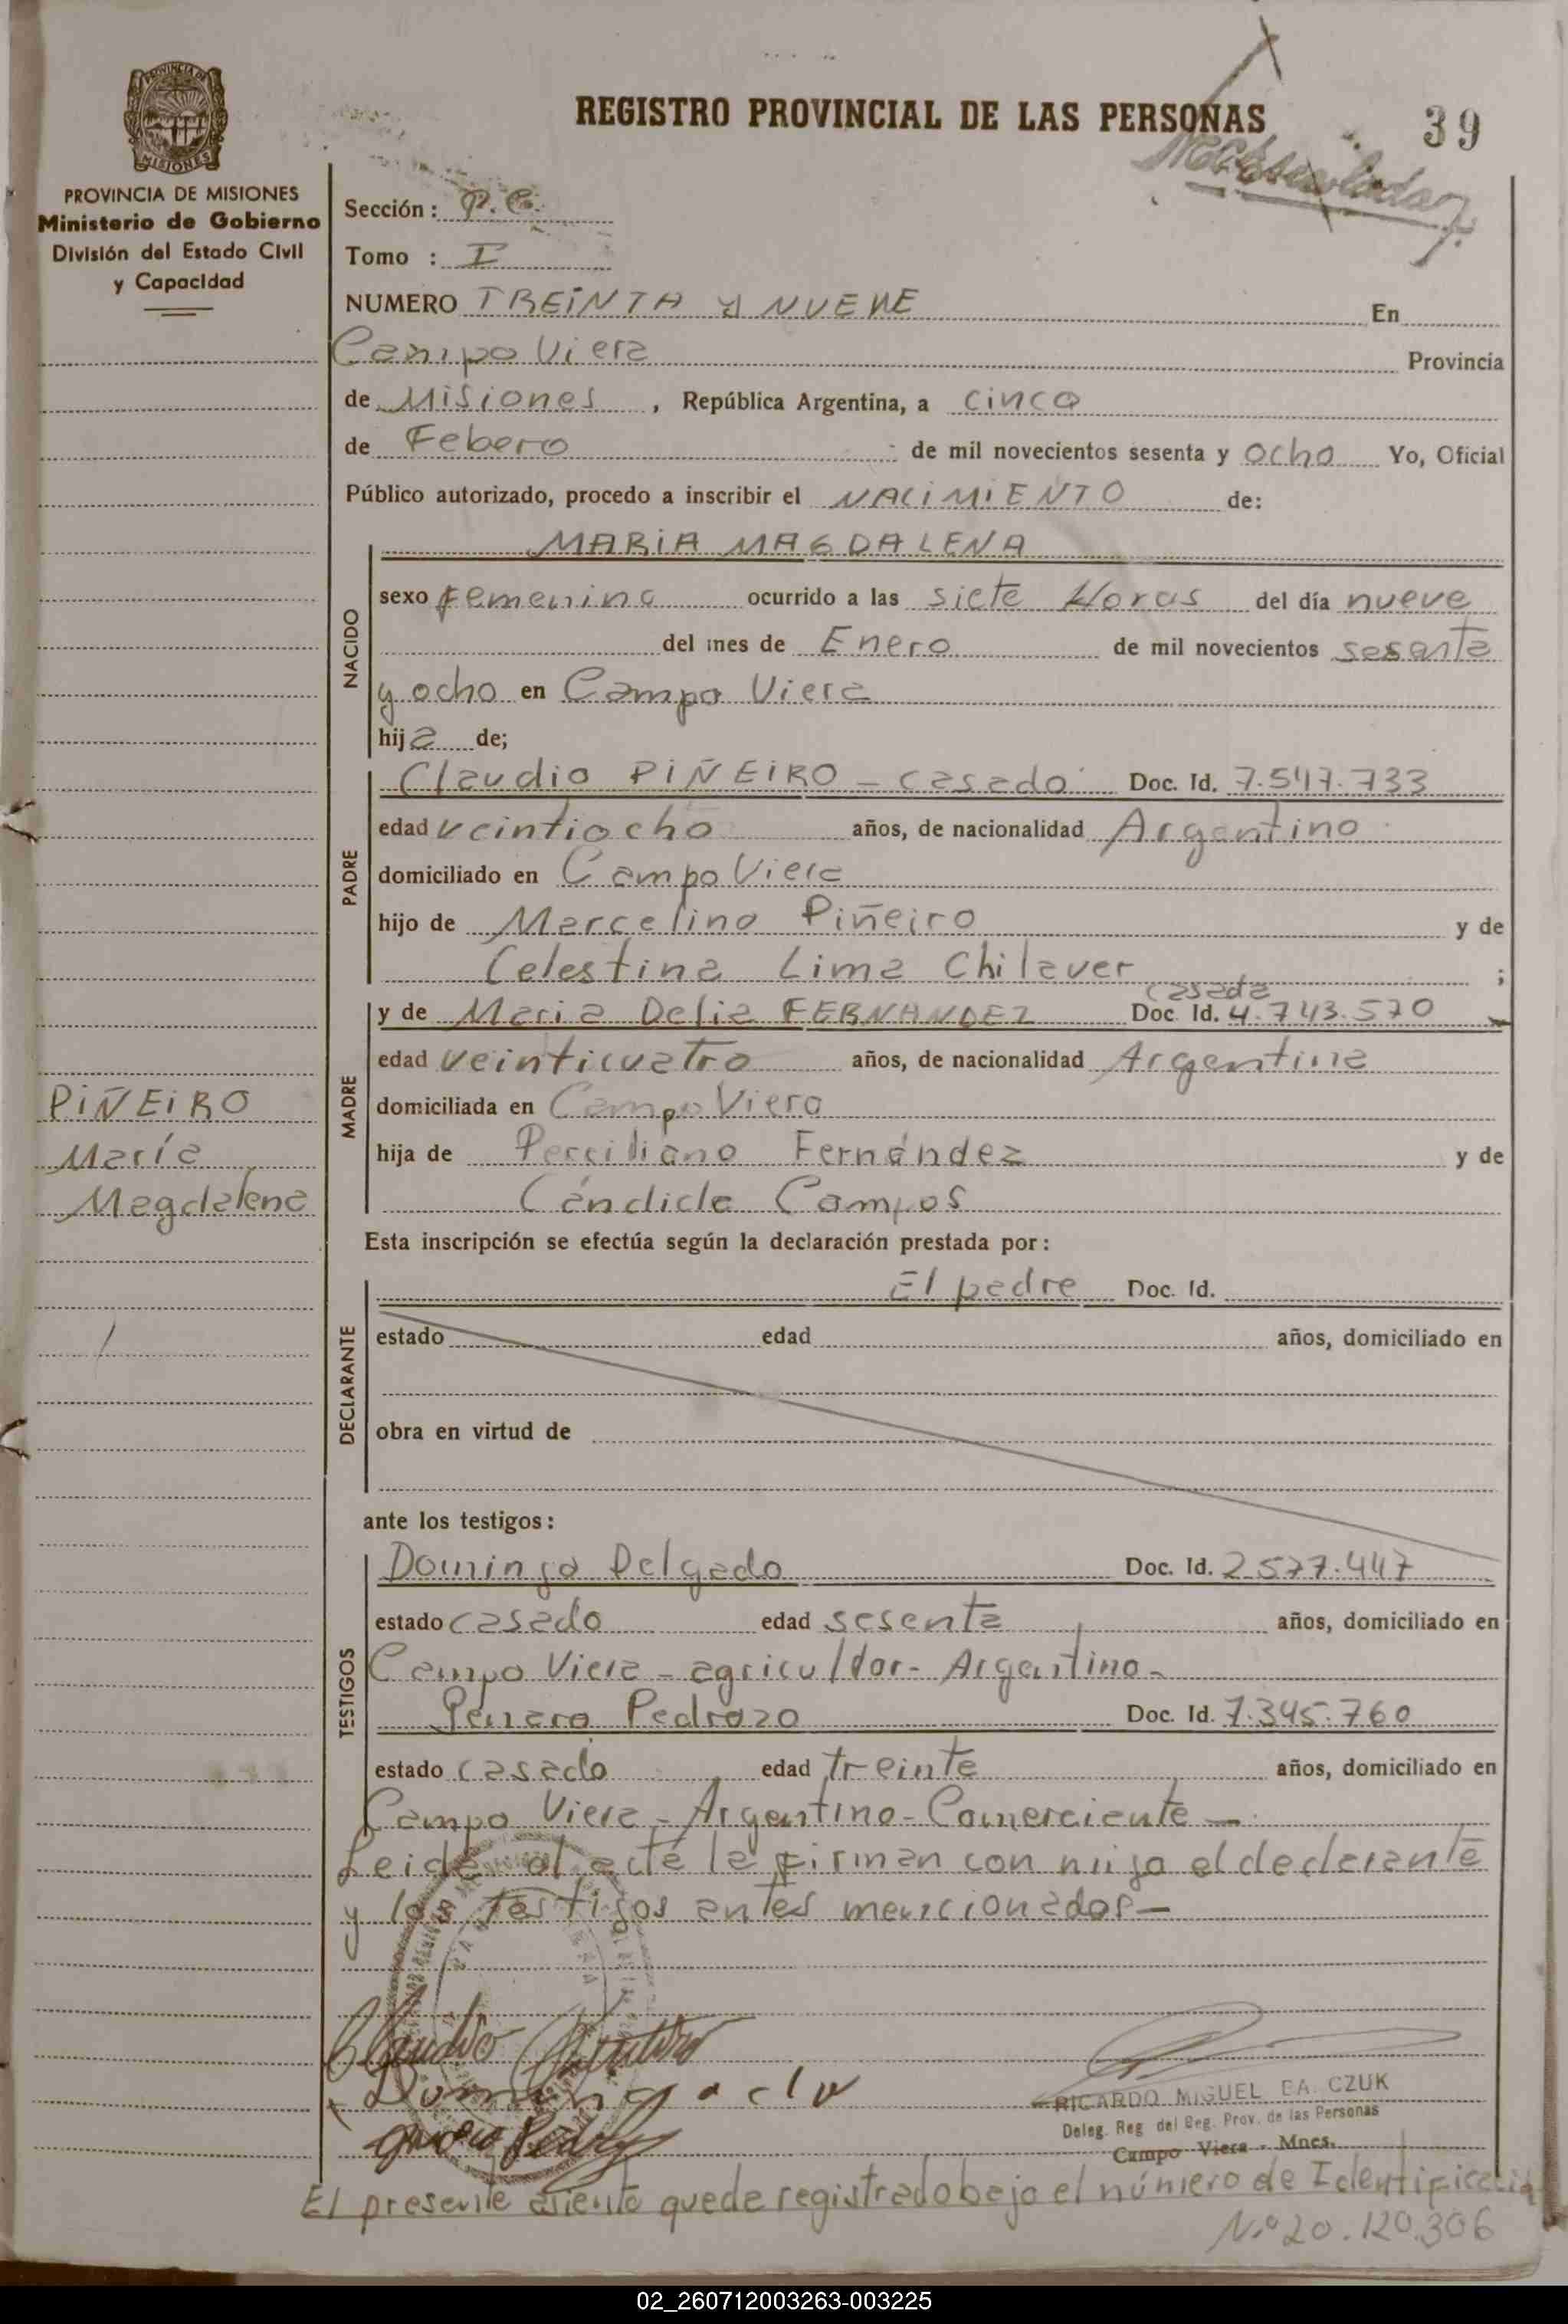 REGISTRO PROVINCIAL DE LAS PERSONAS
39
PROVINCIA DE MISIONES
Ministerio de Gobierno
División del Estado Civil
y Capacidad
Sección: P.E.
Tomo : I
NUMERO TREINTA y NUEVE En
Campo Viera Provincia
de Misiones, República Argentina, a cinco
de Febero de mil novecientos sesenta y ocho Yo, Oficial
Público autorizado, procedo a inscribir el NACIMIENTO de:
NACIDO
MARIA MAGDALENA
sexo femenino ocurrido a las siete Horas del día nueve
del mes de Enero de mil novecientos sesenta
y ocho en Campo Viera
hija de;
PADRE
Claudio PIÑEIRO - casado Doc. Id. 7.547.733
edad veintiocho años, de nacionalidad Argentino
domiciliado en Campo Viera
hijo de Marcelino Piñeiro y de
Celestina Lima Chilaver ;
MADRE
casada
y de Maria Delia FERNANDEZ Doc. Id. 4.743.570
edad veinticuatro años, de nacionalidad Argentina
domiciliada en Campo Viera
hija de Perciliano Fernández y de
Cándida Campos
PIÑEIRO
María
Magdalena
Esta inscripción se efectúa según la declaración prestada por:
DECLARANTE
El padre Doc. Id.
estado edad años, domiciliado en
obra en virtud de
ante los testigos:
TESTIGOS
Domingo Delgado Doc. Id. 2.577.447
estado casado edad sesenta años, domiciliado en
Campo Viera - agricultor - Argentino -
Genaro Pedrozo Doc. Id. 7.345.760
estado casado edad treinta años, domiciliado en
Campo Viera - Argentino - Comerciante -
Leida el acta la firman con migo el declarante
y los testigos antes mencionados -
Claudio
RICARDO MIGUEL
Deleg. Reg. del Reg. Prov. de las Personas
Campo Viera - Mnes.
El presente asiento queda registrado bajo el número de Identificación
N.º 20.120.306
02_260712003263-003225